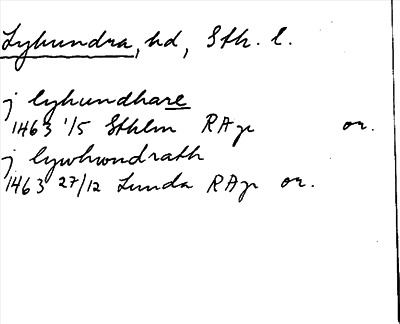 Lyhundra, hd, Sth. l.
j lyhundhare
1463 1/5 Sthlm RAp or.
j lywhwndrath
1463 27/12 Lunda RAp or.